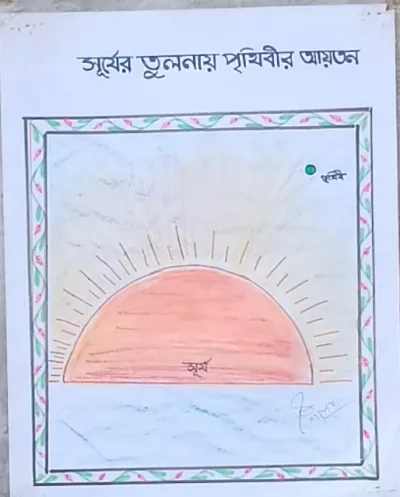 সূর্যের তুলনায় পৃথিবীর আয়তন
পৃথিবী
সূর্য